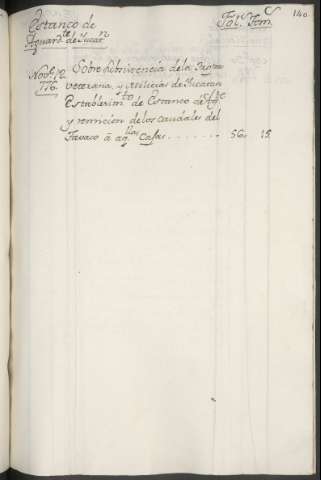 Estanco de
Aguard.te de Yucat.n
Fol.s Tom.s
140
Nov.e 12
776.
Sobre subsistencia de la Tropa
veterana, y Milicias de Yucatan
Establecim.to de Estanco de Ag.te
y remision de los caudales del
Tavaco à aq.llas Casas . . . . . . . 56. 15.